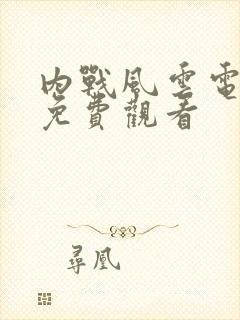 內戰風雲電
免費觀看
尋凰